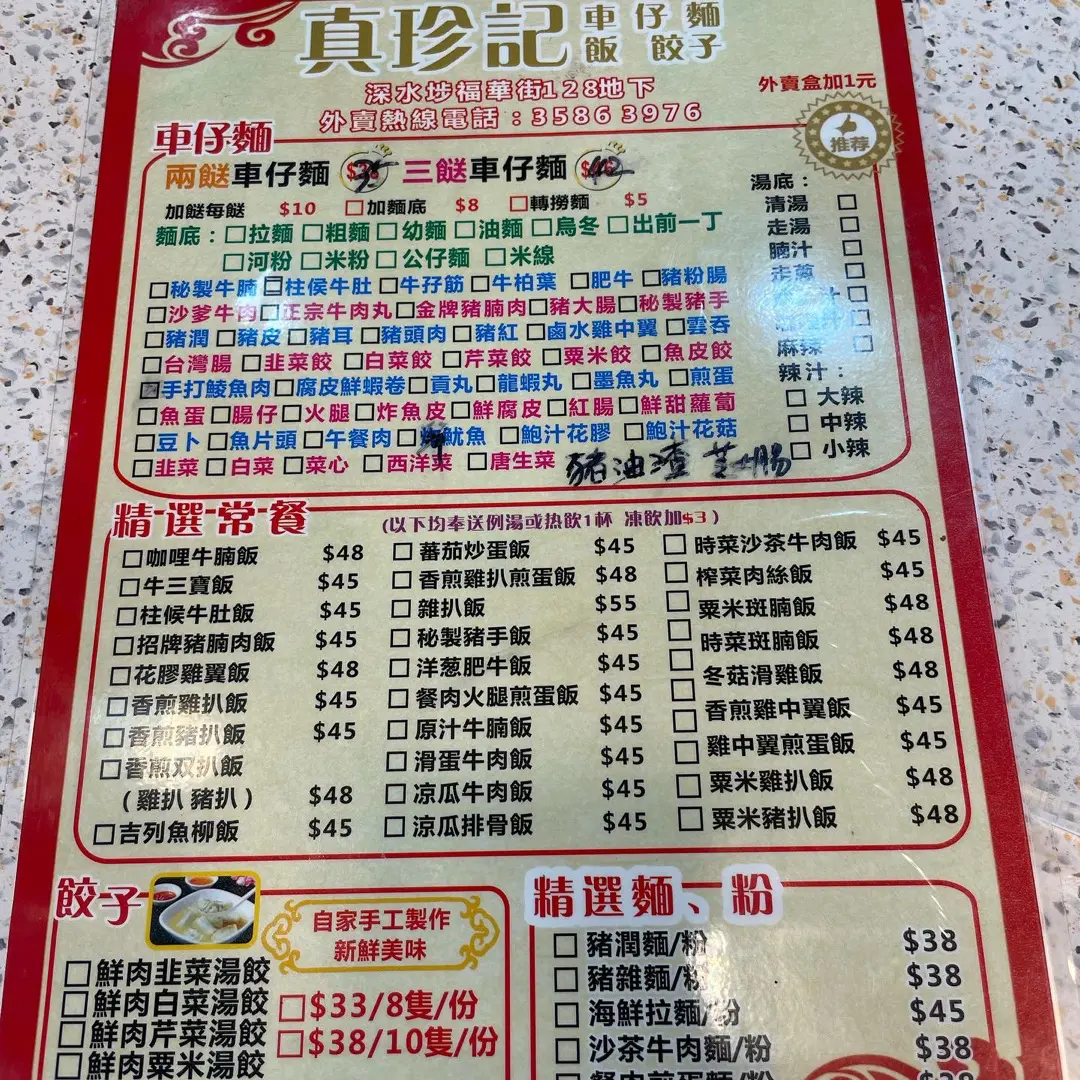 真珍記 車仔麵
飯 餃子
深水埗福華街128地下
外賣熱線電話：3586 3976
外賣盒加1元
推荐
車仔麵
兩餸車仔麵 35 三餸車仔麵
加餸每餸 $10 □加麵底 $8 □轉撈麵 $5
麵底：□拉麵 □粗麵 □幼麵 □油麵 □烏冬 □出前一丁
□河粉 □米粉 □公仔麵 □米線
□秘製牛腩 □柱侯牛肚 □牛孖筋 □牛柏葉 □肥牛 □豬粉腸
□沙爹牛肉 □正宗牛肉丸 □金牌豬腩肉 □豬大腸 □秘製豬手
□豬潤 □豬皮 □豬耳 □豬頭肉 □豬紅 □鹵水雞中翼 □雲吞
□台灣腸 □韭菜餃 □白菜餃 □芹菜餃 □粟米餃 □魚皮餃
□手打鯪魚肉 □腐皮鮮蝦卷 □貢丸 □龍蝦丸 □墨魚丸 □煎蛋
□魚蛋 □腸仔 □火腿 □炸魚皮 □鮮腐皮 □紅腸 □鮮甜蘿蔔
□豆卜 □魚片頭 □午餐肉 □魷魚 □鮑汁花膠 □鮑汁花菇
□韭菜 □白菜 □菜心 □西洋菜 □唐生菜 豬油渣
湯底：
清湯 □
走湯 □
腩汁 □
走蔥 □
汁 □
□
麻辣 □
辣汁：
□ 大辣
□ 中辣
□ 小辣
精選常餐 (以下均奉送例湯或热飲1杯 凍飲加$3)
□咖哩牛腩飯 $48
□牛三寶飯 $45
□柱候牛肚飯 $45
□招牌豬腩肉飯 $45
□花膠雞翼飯 $48
□香煎雞扒飯 $45
□香煎豬扒飯 $45
□香煎双扒飯
(雞扒 豬扒) $48
□吉列魚柳飯 $45
□ 蕃茄炒蛋飯 $45
□ 香煎雞扒煎蛋飯 $48
□ 雜扒飯 $55
□ 秘製豬手飯 $45
□ 洋葱肥牛飯 $45
□ 餐肉火腿煎蛋飯 $45
□ 原汁牛腩飯 $45
□ 滑蛋牛肉飯 $45
□ 凉瓜牛肉飯 $45
□ 涼瓜排骨飯 $45
□ 時菜沙茶牛肉飯 $45
□ 榨菜肉絲飯 $45
□ 粟米斑腩飯 $48
□ 時菜斑腩飯 $48
□ 冬菇滑雞飯 $48
□ 香煎雞中翼飯 $45
□ 雞中翼煎蛋飯 $45
□ 粟米雞扒飯 $48
□ 粟米豬扒飯 $48
餃子
自家手工製作
新鮮美味
□鮮肉韭菜湯餃
□鮮肉白菜湯餃
□鮮肉芹菜湯餃
□鮮肉粟米湯餃
□$33/8隻/份
□$38/10隻/份
精選麵、粉
□ 豬潤麵/粉 $38
□ 豬雜麵/粉 $38
□ 海鮮拉麵/粉 $45
□ 沙茶牛肉麵/粉 $38
□ 餐肉煎蛋麵/粉 $38